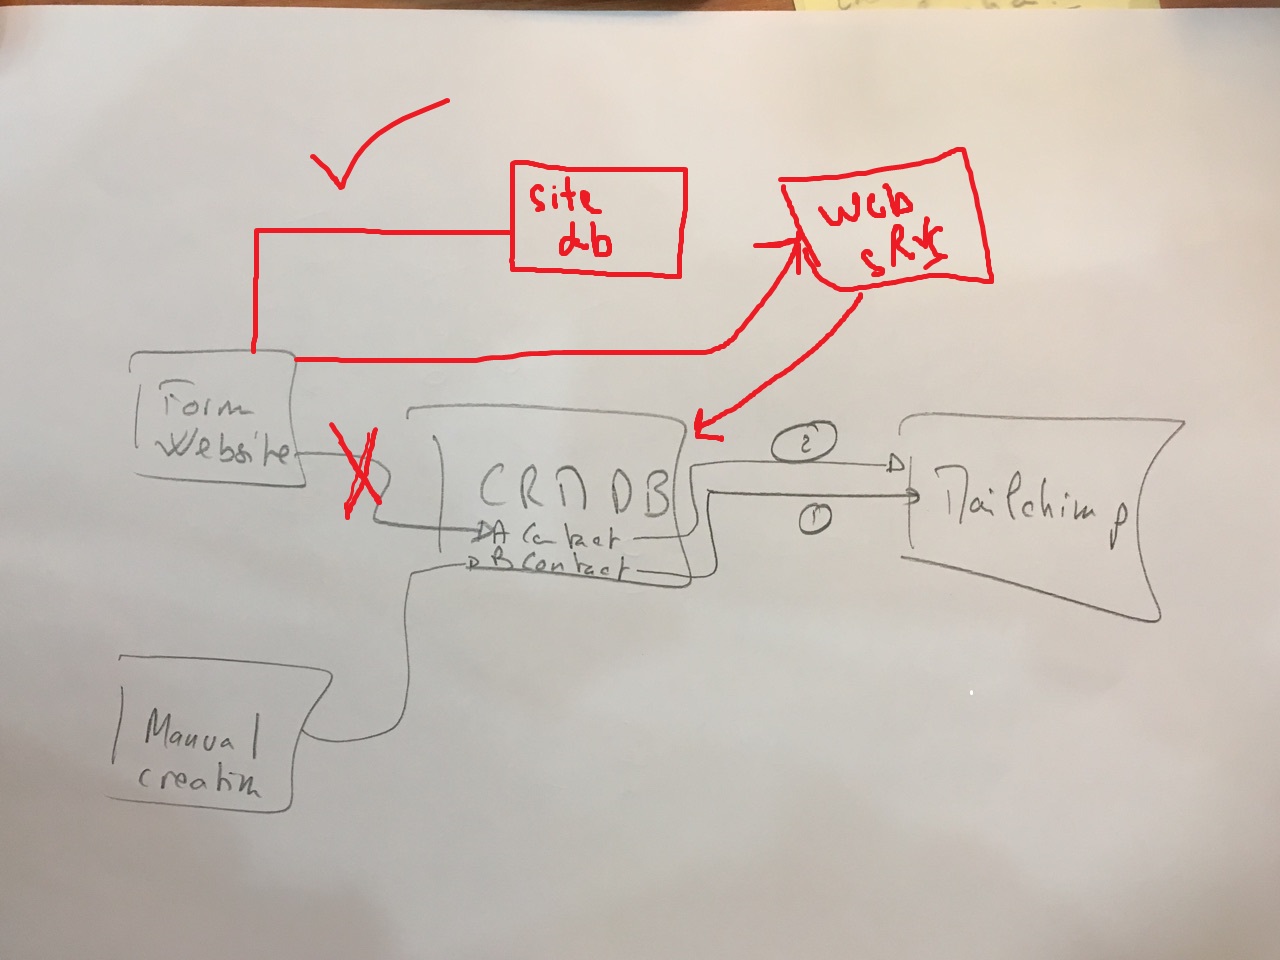 site
db
web
sRVS
Form
Website
CRM DB
A Contact
B Contact
2
1
Mailchimp
Manual
creation